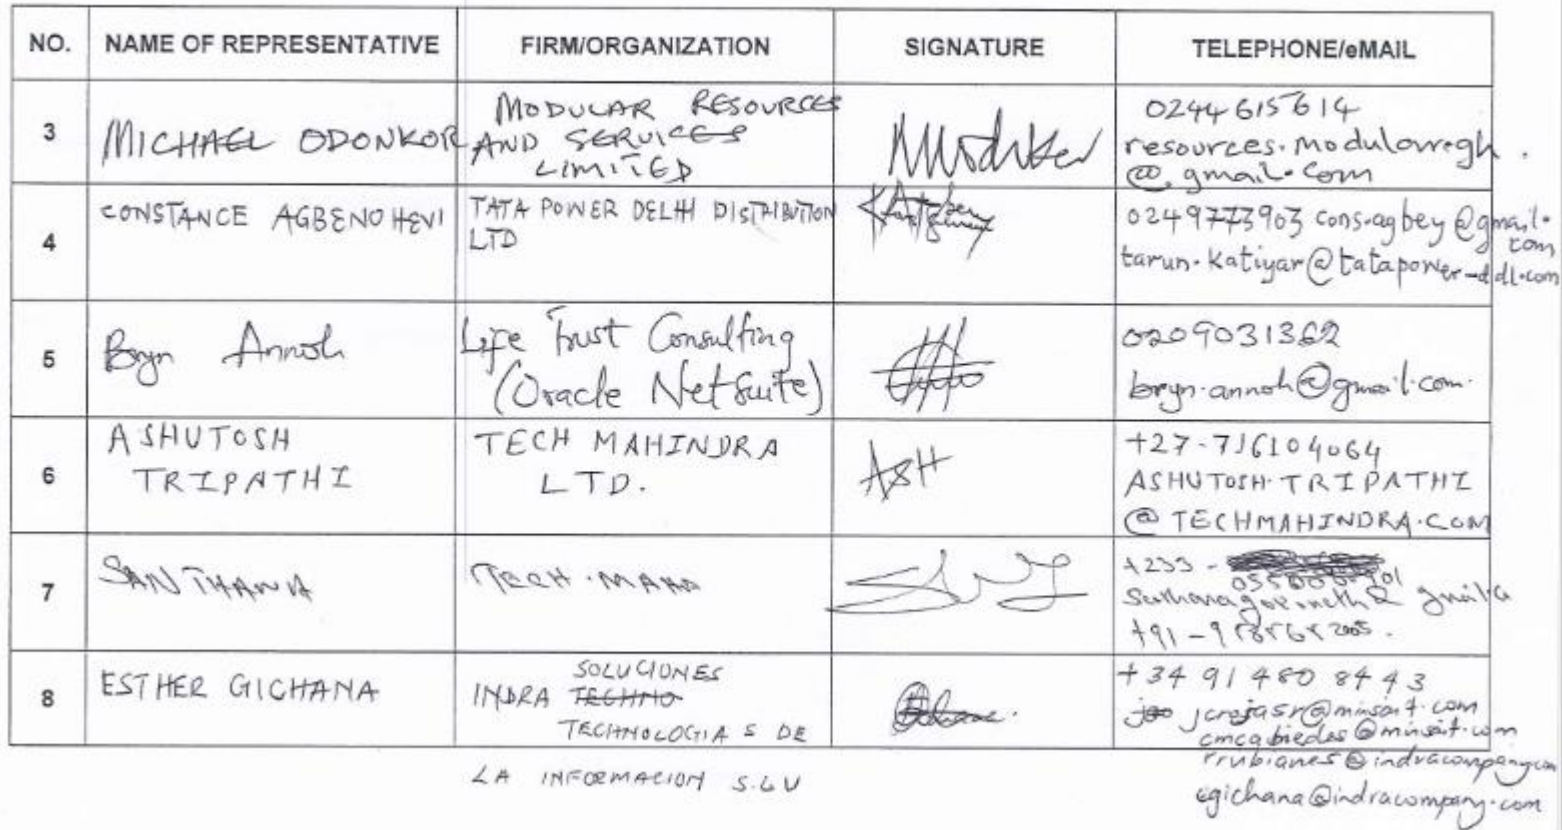 NO. NAME OF REPRESENTATIVE FIRM/ORGANIZATION SIGNATURE TELEPHONE/eMAIL
3
MICHAEL ODONKOR
MODULAR RESOURCES
AND SERVICES
LIMITED
0244 615614
resources.modularregh
@gmail.com
4
CONSTANCE AGBENOHEVI
TATA POWER DELHI DISTRIBUTION
LTD
0249773903 cons.agbey@gmail.
com
tarun.katiyar@tatapower-ddl.com
5
Bryn Annoh
Life Trust Consulting
(Oracle NetSuite)
0209031362
bryn.annoh@gmail.com.
6
ASHUTOSH
TRIPATHI
TECH MAHINDRA
LTD.
ASH
+27-716104064
ASHUTOSH.TRIPATHI
@TECHMAHINDRA.COM
7
SANTHANA
TECH.
+233 -
8
ESTHER GICHANA
SOLUCIONES
INDRA TECHNO
TECHNOLOGIAS DE
LA INFORMACION S.L.U
+34 91 480 8443
jcrojasr@minsait.com
cmcabiedas@minsait.com
rrubianes@indracompany.com
egichana@indracompany.com